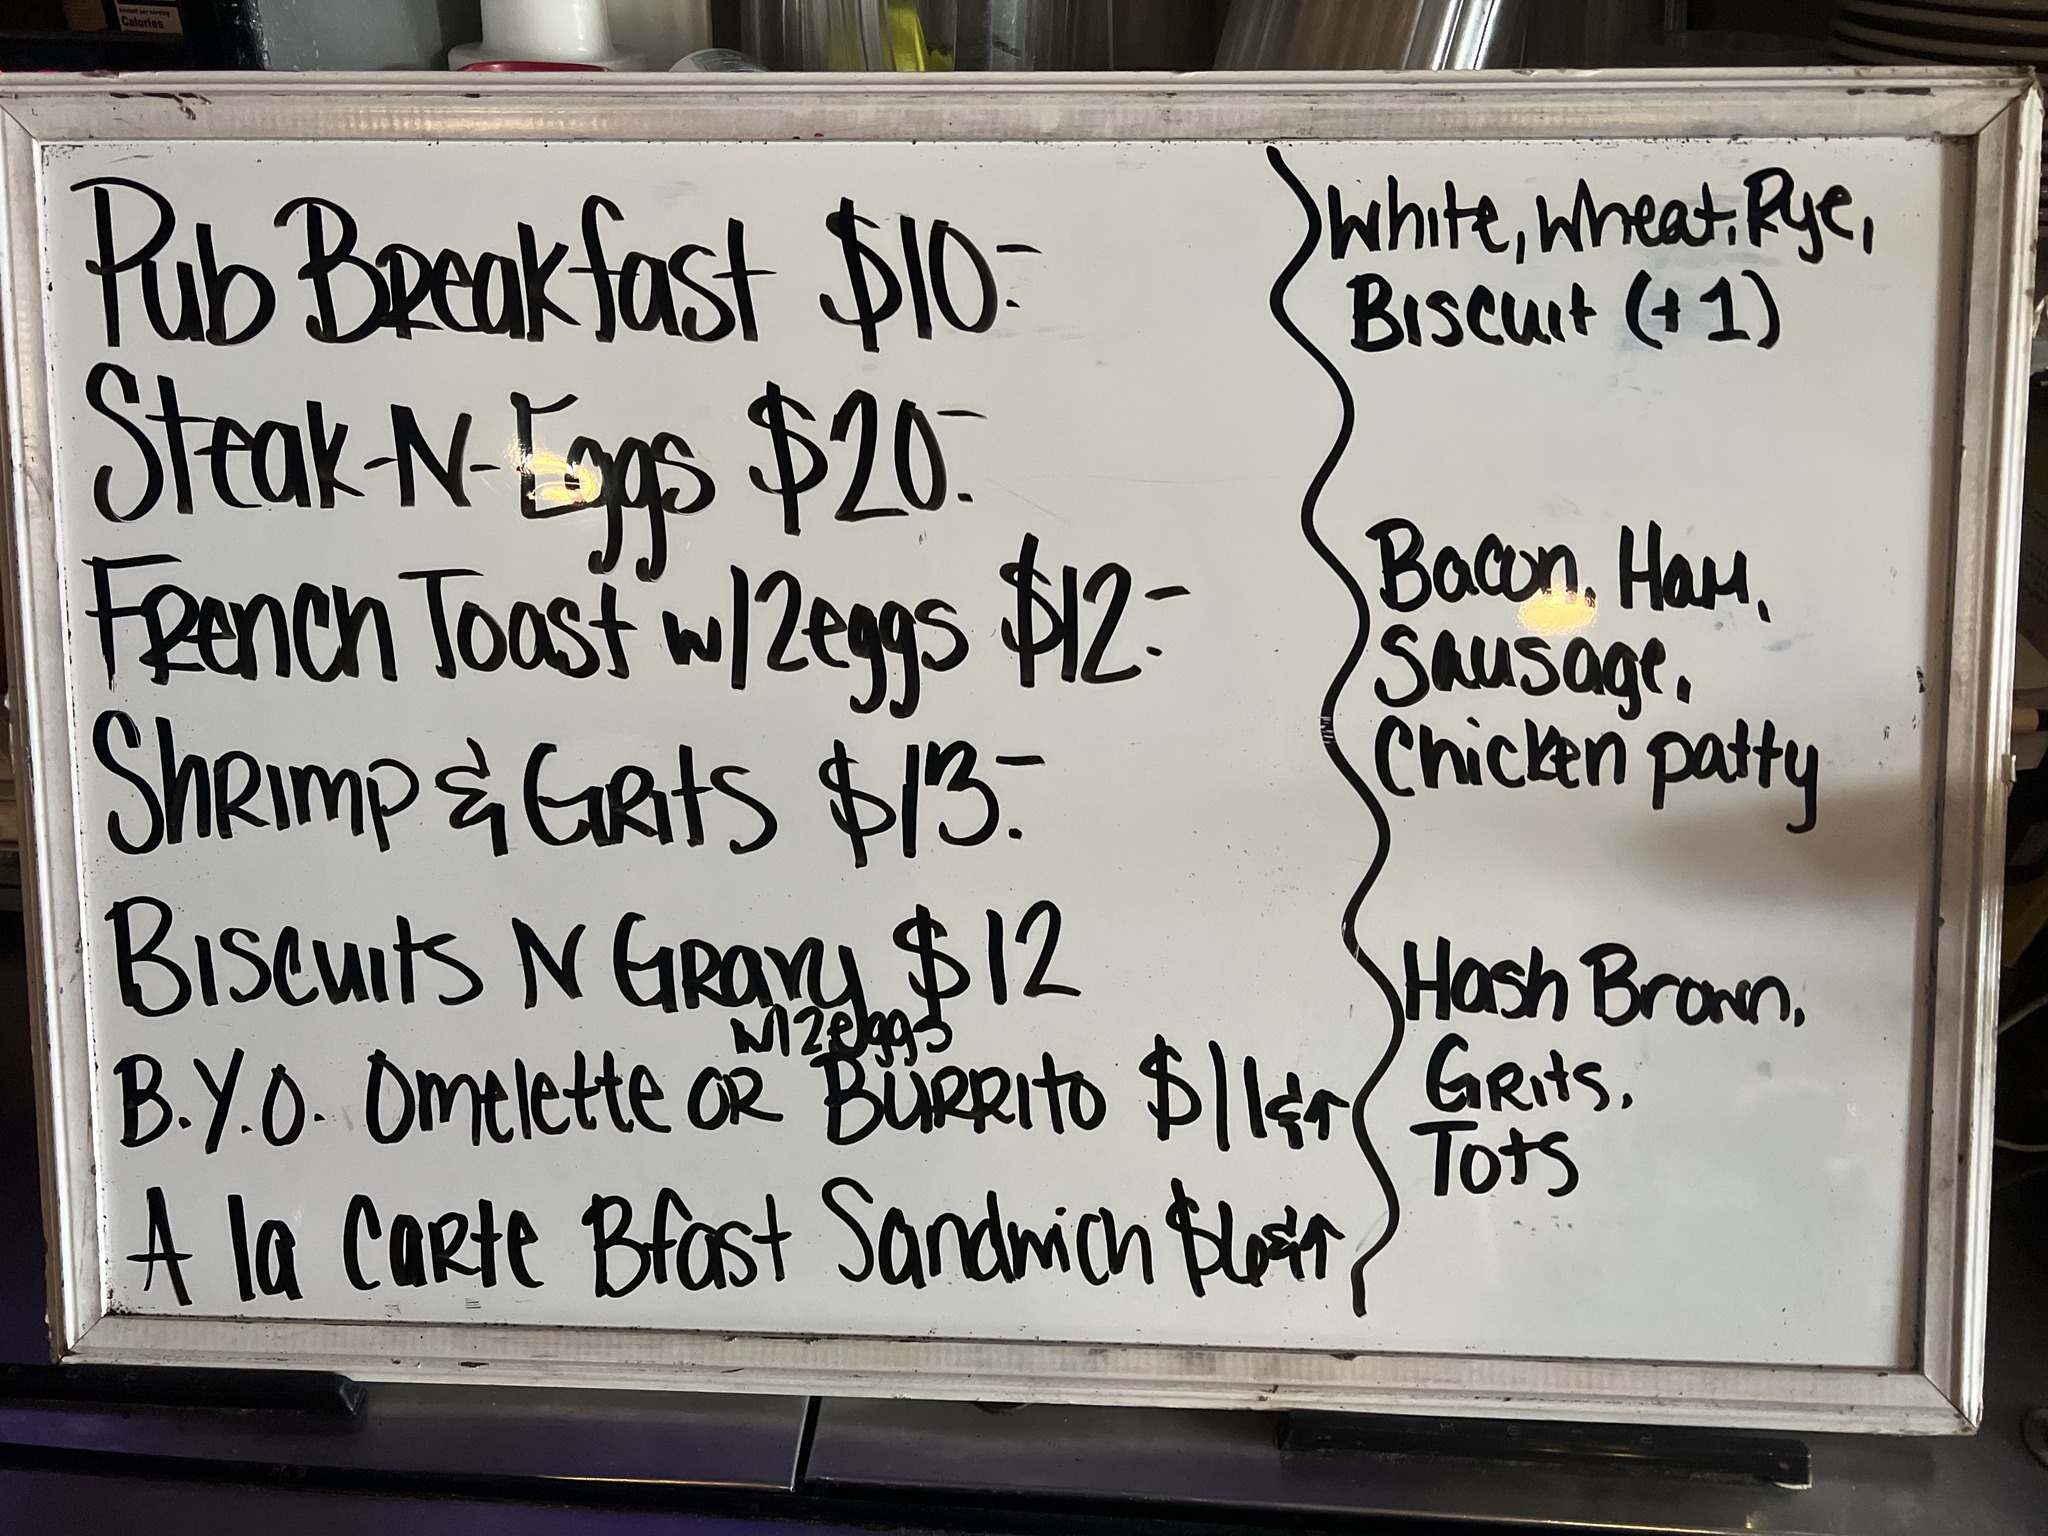 Amount per serving
Calories
Pub Breakfast $10.-
Steak-N-Eggs $20.-
French Toast w/2eggs $12.-
Shrimp & Grits $13.-
Biscuits N Gravy $12
w/2eggs
B.Y.O. Omelette or Burrito $11&↑
A la Carte Bfast Sandwich $6&↑
White, Wheat, Rye,
Biscuit (+1)
Bacon, Ham,
Sausage,
Chicken patty
Hash Brown,
Grits,
Tots